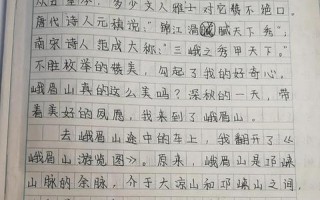 多少文人雅士对它赞不绝口。
唐代诗人元稹说:"锦江滑腻天下秀";
南宋诗人范成大称:"三峨之秀甲天下"。
不胜枚举的赞美,勾起了我的好奇心。
峨眉山真的这么美吗?深秋的一天,带
着美好的夙愿,我来到了峨眉山。
去峨眉山途中的车上,我翻开了《
峨眉山游览图》。原来,峨眉山是邛崃
山脉的余脉,介于大凉山和邛崃山之间,